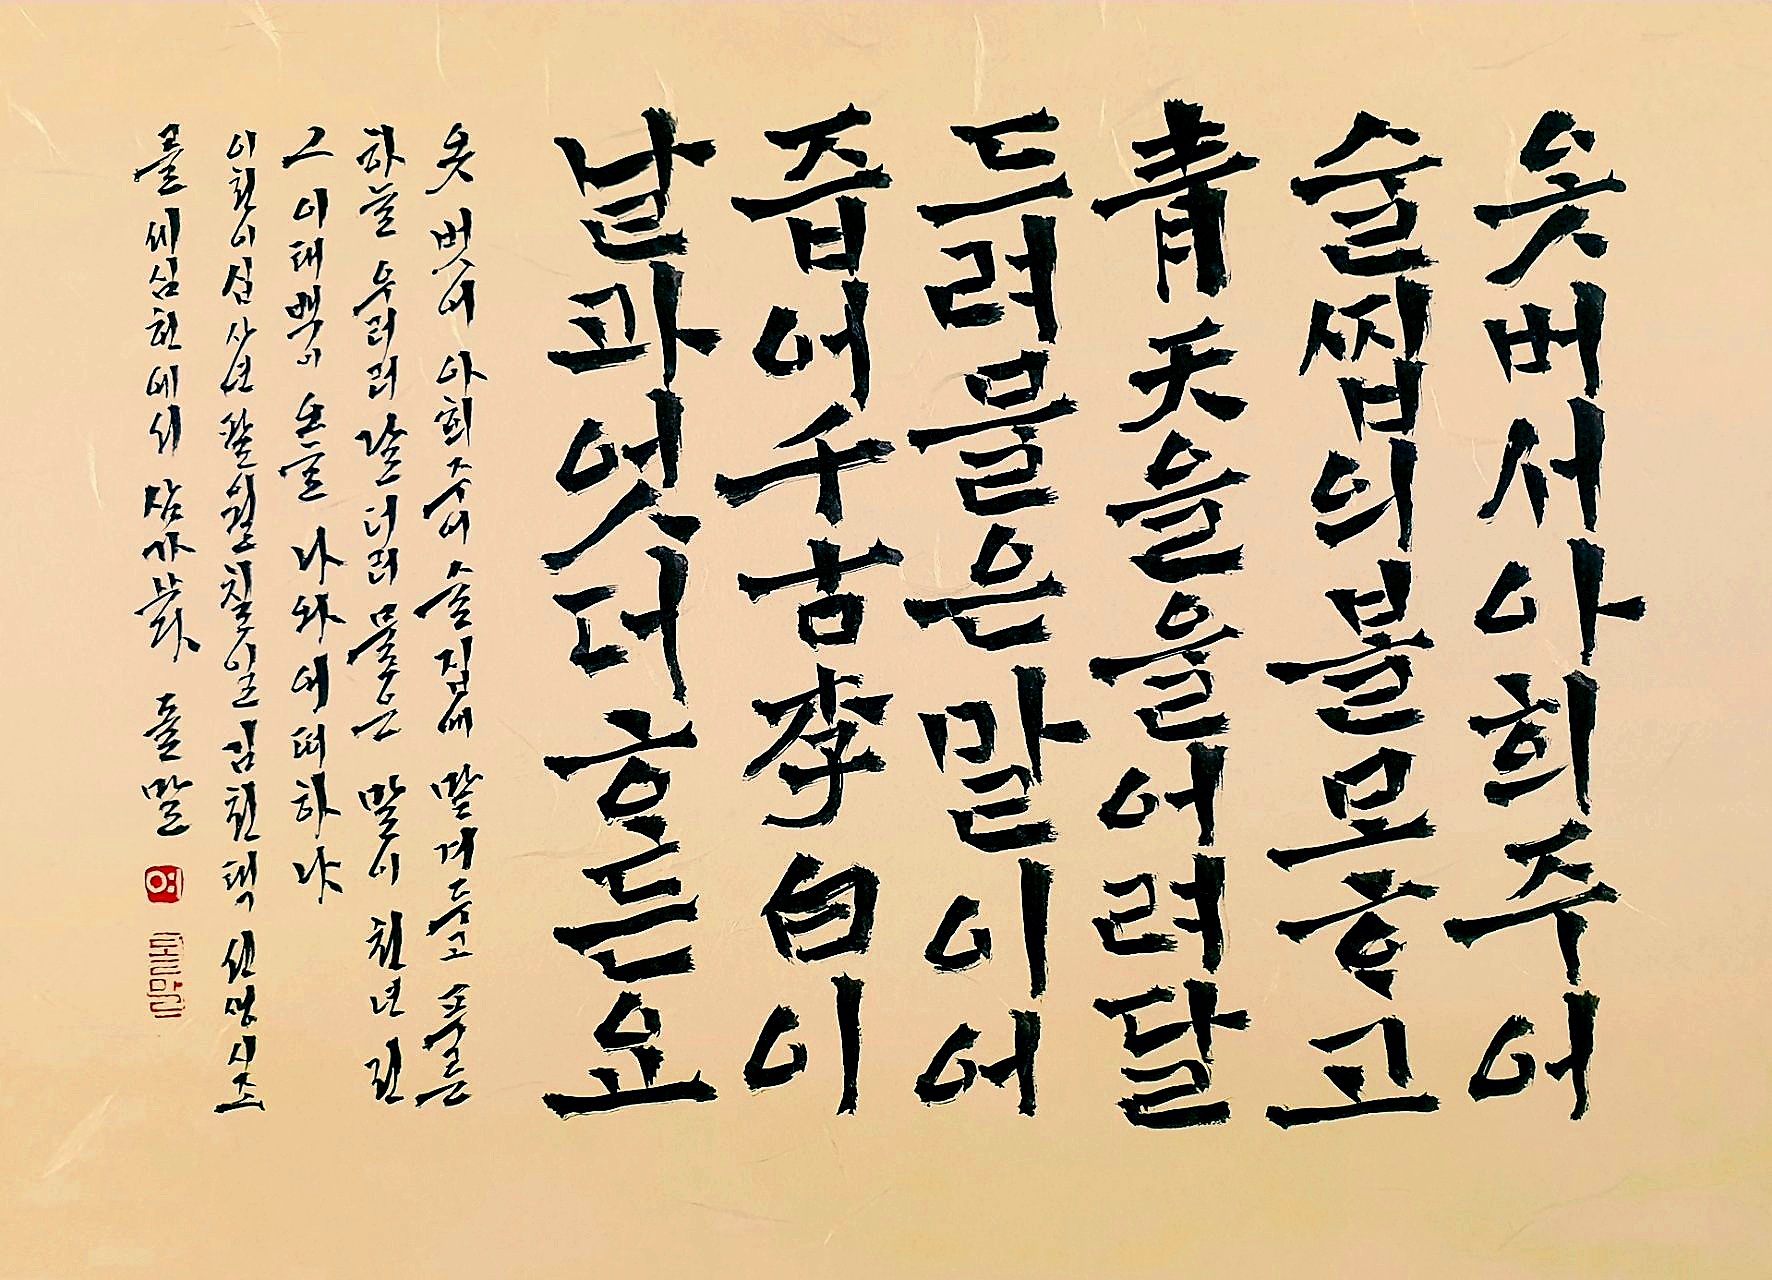 옷버서아희주어
술찝의볼모ᄒᆞ고
靑天을울어려달
드려물은말이어
즙어千古李白이
날과엇더ᄒᆞ든요
옷 벗어 아희 주어 술집에 맡겨두고 푸른
하늘 우러러 달더러 물은 말이 천년 전
그 이태백이 온들 나와 어떠하냐
이천이십사년 팔월 칠일 김천택 선생 시조
를 세심헌에서 삼가 쓰다